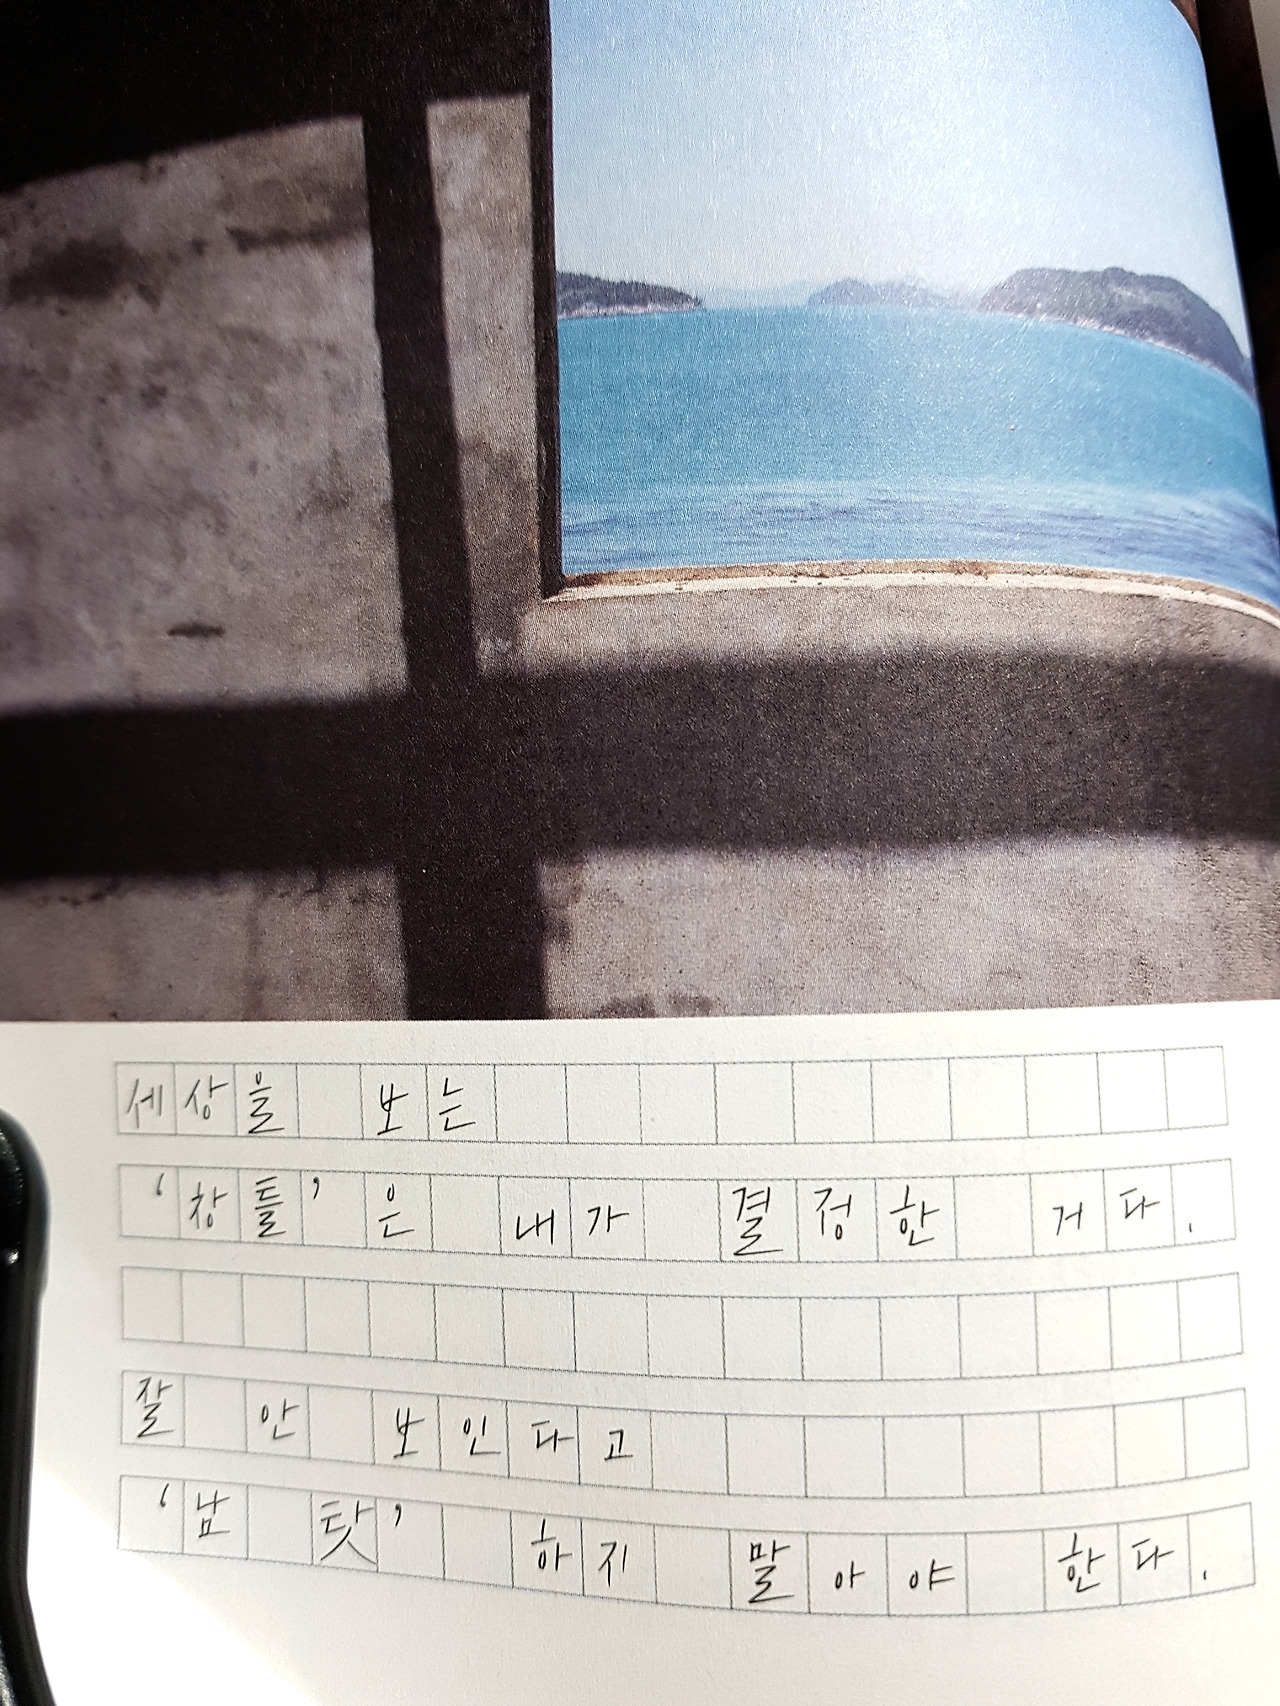 세상을 보는
‘창틀’은 내가 결정한 거다.
잘 안 보인다고
‘남 탓’ 하지 말아야 한다.